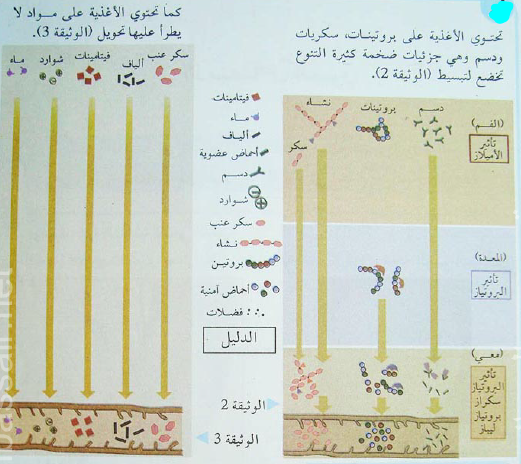 تحتوي الأغذية على بروتينات، سكريات
ودسم وهي جزئيات ضخمة كثيرة التنوع
تخضع لتبسيط (الوثيقة 2).
(الفم)
تأثير
الأميلاز
نشاء
بروتينات
دسم
سكر
(المعدة)
تأثير
البروتياز
(معي)
تأثير
البروتياز
سكراز
بروتياز
ليباز
كما تحتوي الأغذية على مواد لا
يطرأ عليها تحويل (الوثيقة 3).
سكر عنب
ألياف
فيتامينات
شوارد
ماء
فيتامينات
ماء
ألياف
أحماض عضوية
دسم
شوارد
سكر عنب
نشاء
بروتين
أحماض أمنية
فضلات
الدليل
الوثيقة 2
الوثيقة 3